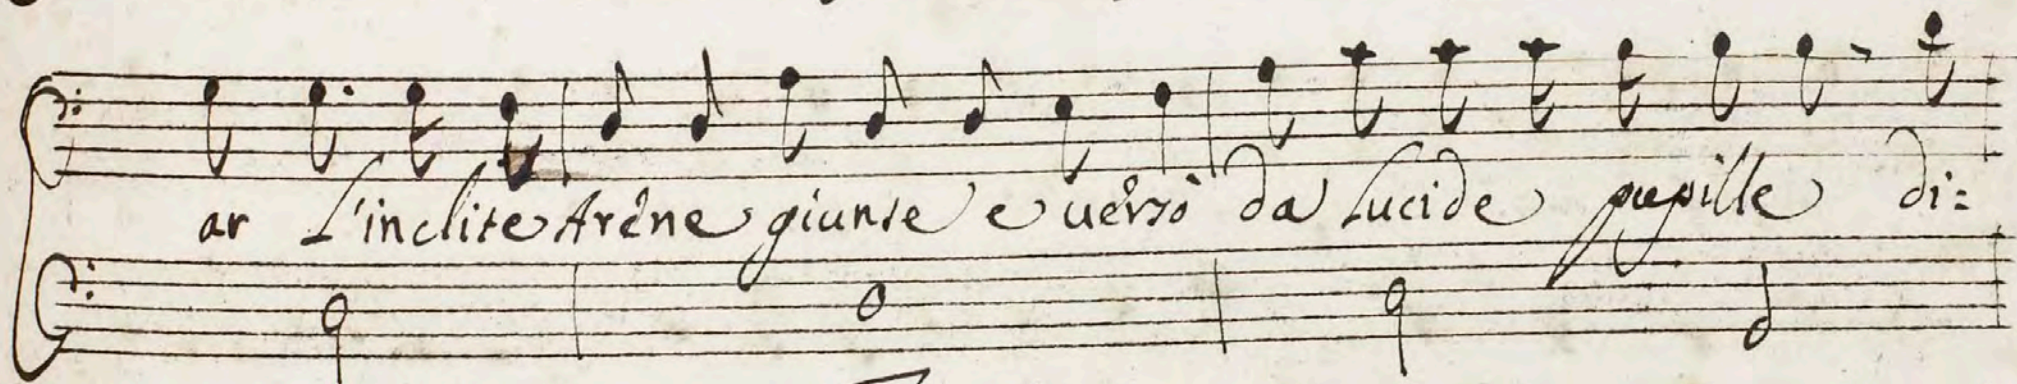 ar L'inclite Arêne giunse e uersò da lucide pupille di: